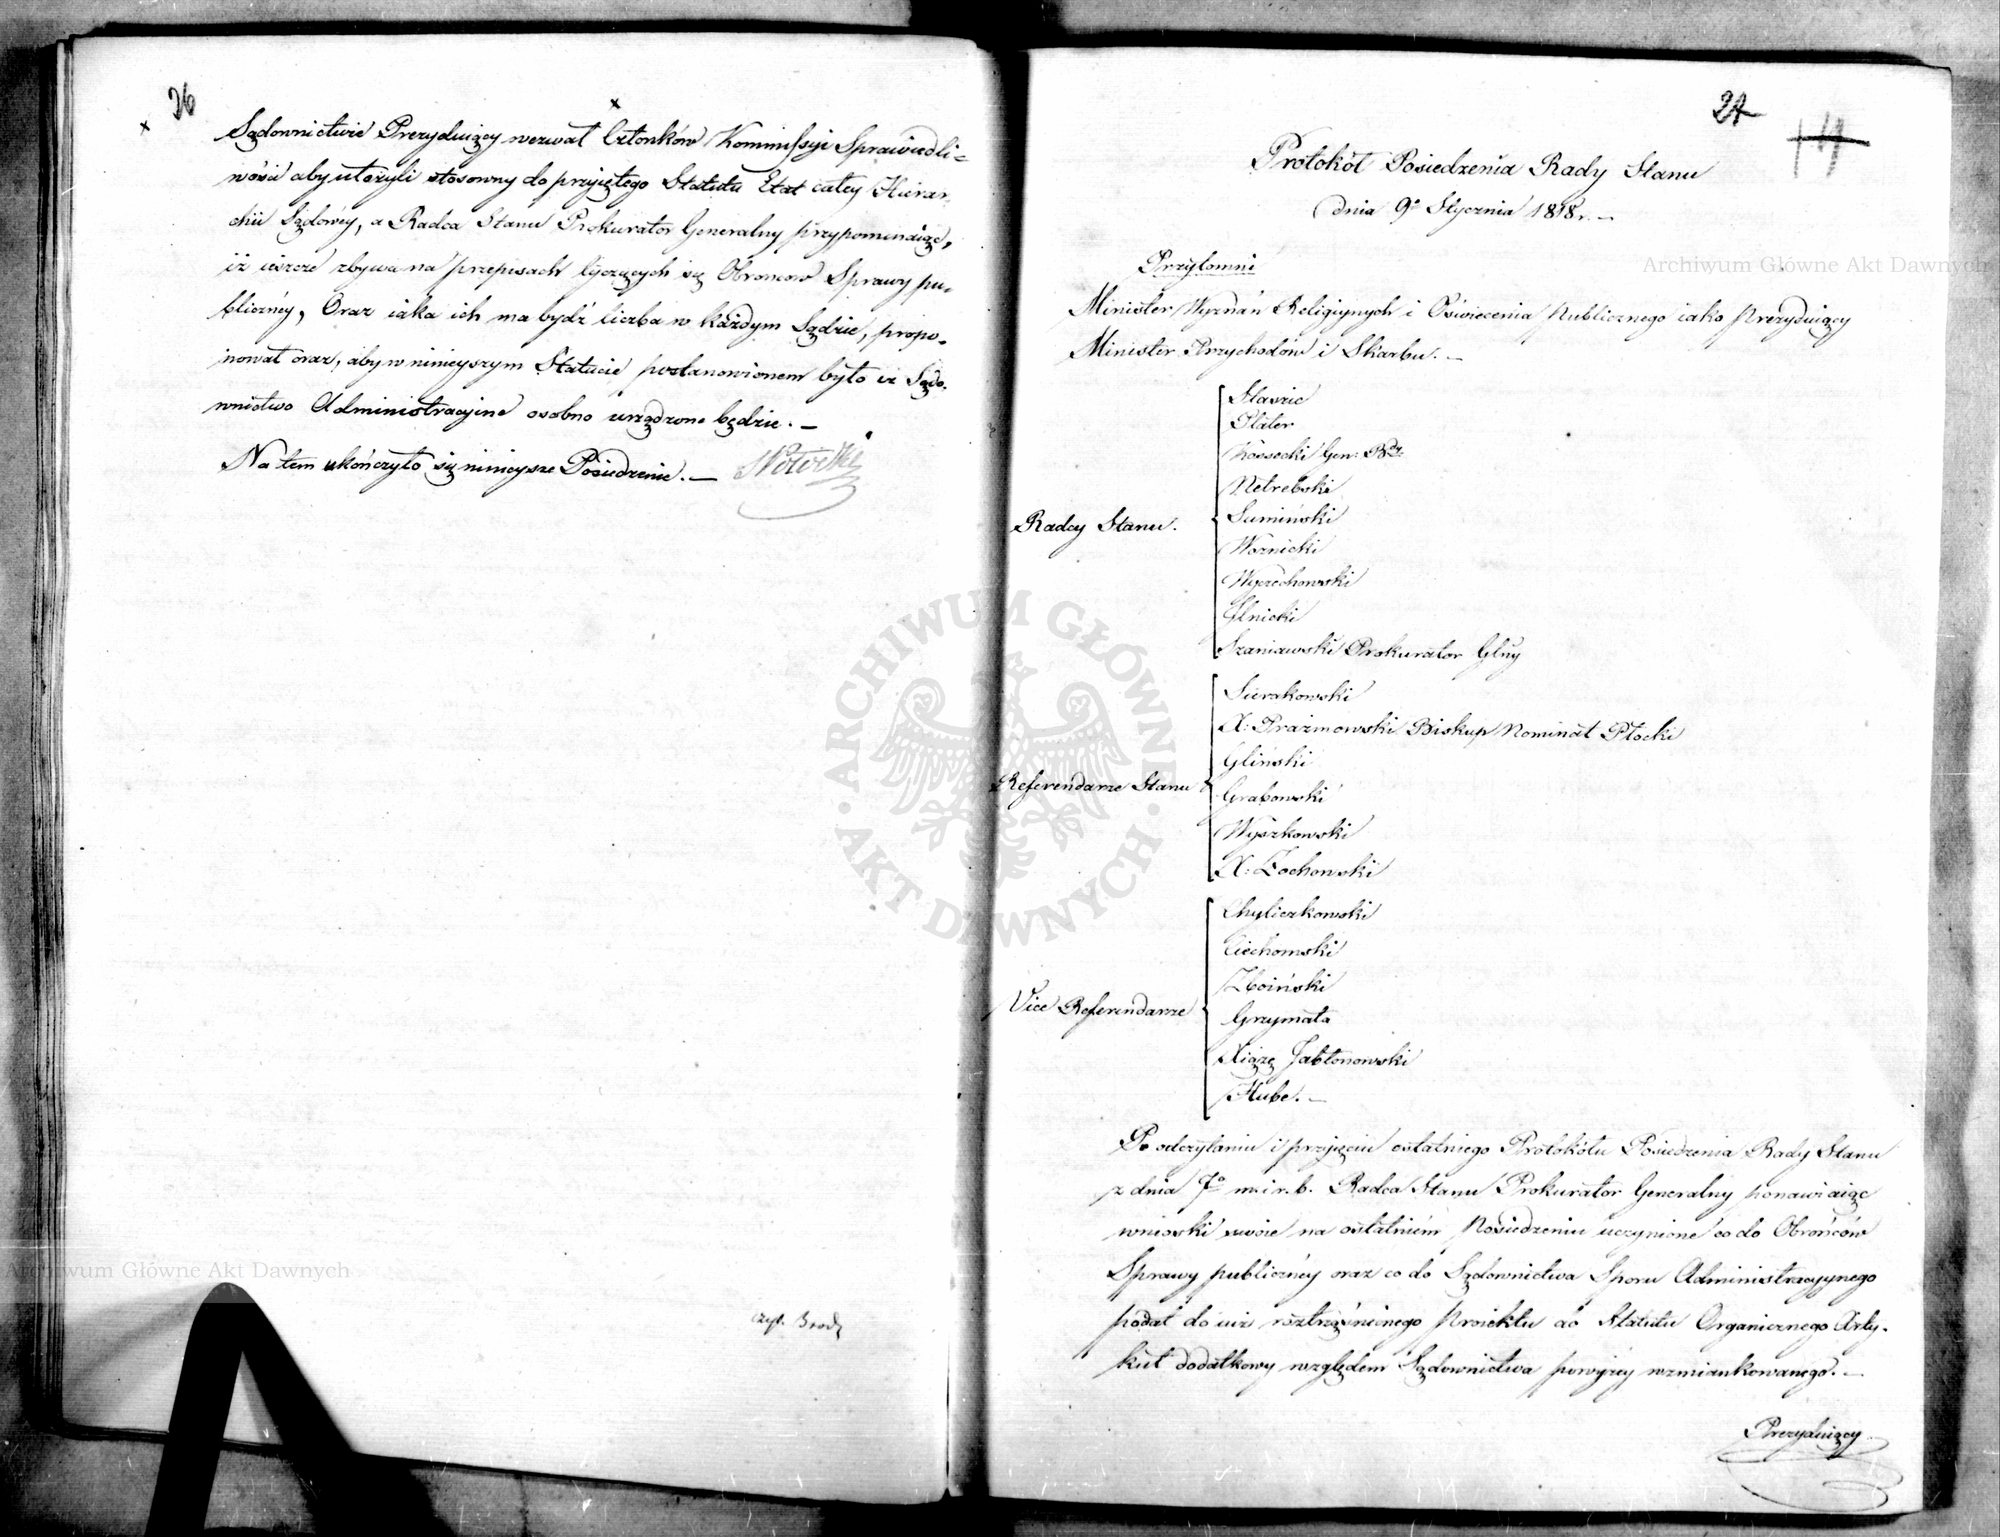 26
Sądownictwie Prezyduiący wezwał Członków Kommissyi Sprawiedli-
wości aby ułożyli stosowny do przyiętego Statutu Etat całey Hierar-
chii Sądowéy, a Radca Stanu Prokurator Generalny przypominaiąc,
iż ieszcze zbywa na przepisach tyczących się Obrońców Sprawy pu-
bliczney, Oraz iaka ich ma bydź liczba w każdym Sądzie, propo-
nował oraz, aby w ninieyszym Statucie postanowionem było iż Sądo-
wnictwo Administracyine osobno urządzone będzie. —
Na tem ukończyło się ninieysze Posiedzenie. —
czyt. Brodz
27
Protokół Posiedzenia Rady Stanu
dnia 9º Stycznia 1818 r. —
Przytomni
Minister Wyznań Religiynych i Oświecenia Publicznego iako Prezyduiący
Minister Przychodów i Skarbu. —
Radcy Stanu.
Staszic
Plater
Kossecki Gen: Bdy
Netrebski
Sumiński
Woznicki
Wyczechowski
Glnicki
Szaniawski Prokurator Glny
Referendarze Stanu
Sierakowski
X: Prażmowski Biskup Nominat Płocki
Gliński
Grabowski
Wyszkowski
X: Żochowski
Vice Referendarze
Chyliczkowski
Ciechomski
Zboiński
Grzymała
Xiążę Jabłonowski
Hube. —
Po odczytaniu i przyięciu ostatniego Protokółu Posiedzenia Rady Stanu
z dnia 7º m. i r. b. Radca Stanu Prokurator Generalny ponawiaiąc
wnioski swoie na ostatniém Posiedzeniu uczynione co do Obrońców
Sprawy publicznéy oraz co do Sądownictwa Sporu Administracyynego
podał do iuż roztrząśnionego Proiektu do Statutu Organicznego Arty-
kuł dodatkowy względem Sądownictwa powyżey wzmiankowanego. —
Prezyduiący
Archiwum Główne Akt Dawnych
Archiwum Główne Akt Dawnych
ARCHIWUM GŁÓWNE · AKT DAWNYCH ·